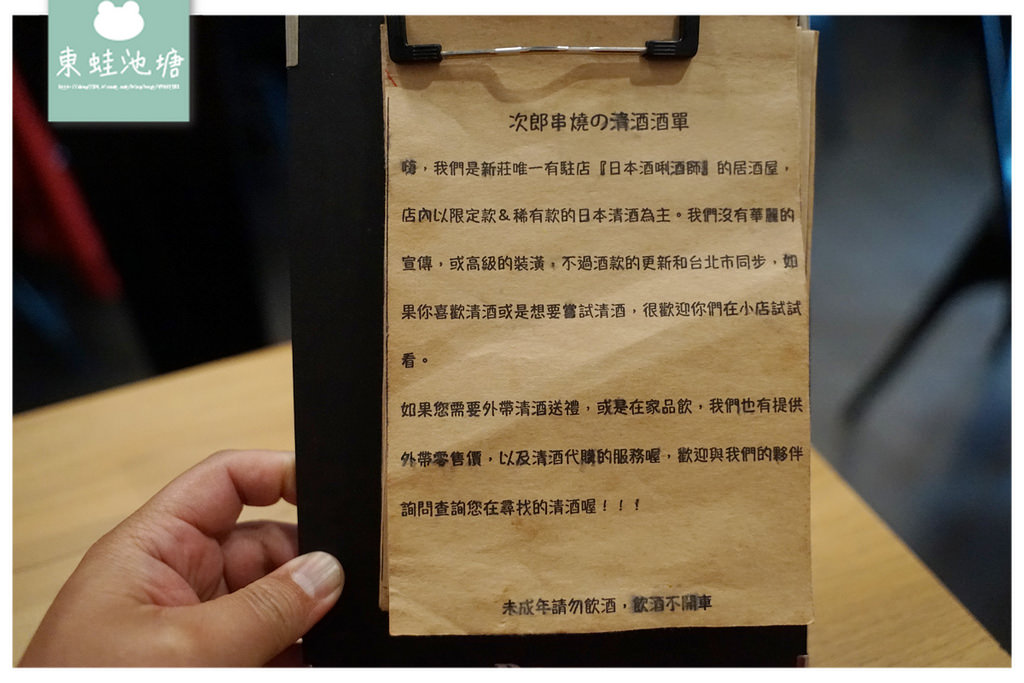 東蛙池塘
次郎串燒の清酒酒單
嗨，我們是新莊唯一有駐店『日本酒唎酒師』的居酒屋，
店內以限定款&稀有款的日本清酒為主。我們沒有華麗的
宣傳，或高級的裝潢，不過酒款的更新和台北市同步，如
果你喜歡清酒或是想要嘗試清酒，很歡迎你們在小店試試
看。
如果您需要外帶清酒送禮，或是在家品飲，我們也有提供
外帶零售價，以及清酒代購的服務喔，歡迎與我們的夥伴
詢問查詢您在尋找的清酒喔！！！
未成年請勿飲酒，飲酒不開車